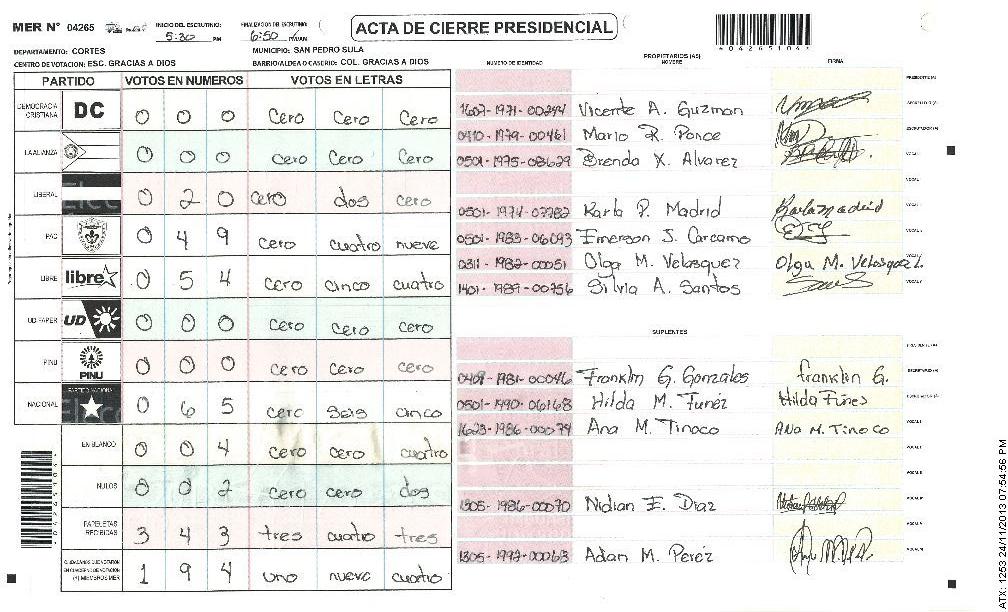 MER N° 04265 INICIO DEL ESCRUTINIO: 5:30 PM FINALIZACION DEL ESCRUTINIO: 6:50 PM/AM ACTA DE CIERRE PRESIDENCIAL
DEPARTAMENTO: CORTES MUNICIPIO: SAN PEDRO SULA
CENTRO DE VOTACION: ESC. GRACIAS A DIOS BARRIO/ALDEA O CASERIO: COL. GRACIAS A DIOS
PARTIDO VOTOS EN NUMEROS VOTOS EN LETRAS
DEMOCRACIA CRISTIANA DC 0 0 0 Cero Cero Cero
LA ALIANZA 0 0 0 Cero Cero Cero
LIBERAL 0 2 0 Cero dos cero
PAC 0 4 9 cero cuatro nueve
LIBRE libre 0 5 4 cero cinco cuatro
UD FAPER UD 0 0 0 cero cero cero
PINU PINU 0 0 0 cero cero cero
NACIONAL PARTIDO NACIONAL 0 6 5 cero seis cinco
EN BLANCO 0 0 4 cero cero cuatro
NULOS 0 0 2 cero cero dos
PAPELETAS RECIBIDAS 3 4 3 tres cuatro tres
1 9 4 uno nueve cuatro
PROPIETARIOS (AS)
NUMERO DE IDENTIDAD NOMBRE FIRMA
Vicente A. Guzman
Mario R. Ponce
0501-1975-08629 Brenda X. Alvarez
Karla P. Madrid Karla Madrid
0501-1983-06093 Emerson J. Carcamo
0311-1982-00051 Olga M. Velasquez Olga M. Velasquez L.
1401-1987-00756 Silvia A. Santos
SUPLENTES
Franklin G. Gonzales Franklin G.
0501-1990-06168 Hilda M. Funez Hilda Fúnes
1623-1986-00079 Ana M. Tinoco ANA M. TINOCO
1305-1986-00070 Nidian E. Diaz
Adan M. Perez
ATX: 1253 24/11/2013 07:54:56 PM